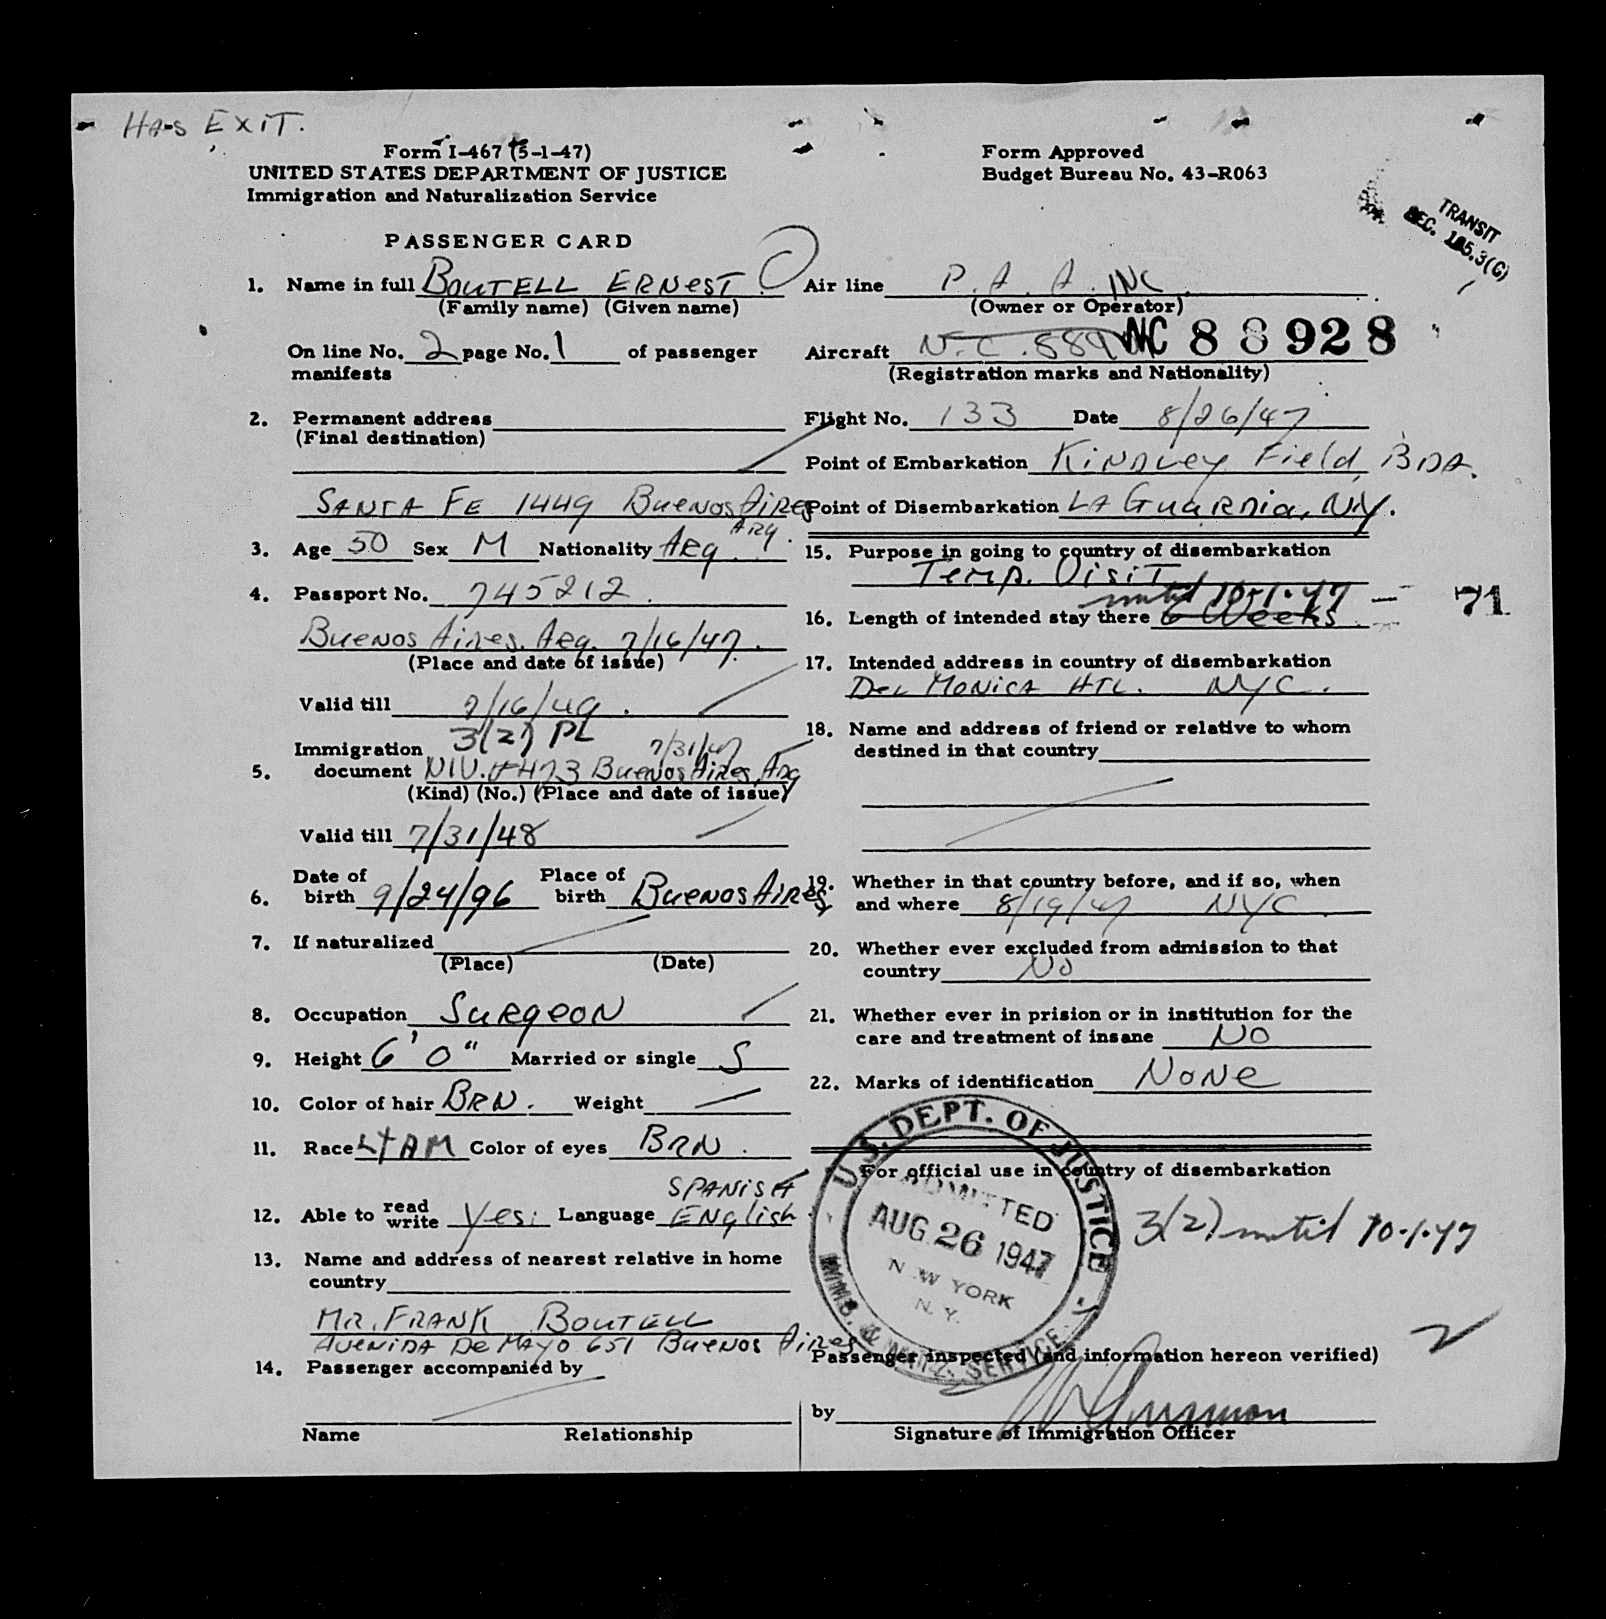 HAS EXIT.
Form I-467 (5-1-47)
UNITED STATES DEPARTMENT OF JUSTICE
Immigration and Naturalization Service
PASSENGER CARD
Form Approved
Budget Bureau No. 43-R063
TRANSIT
SEC. 125.3(G)
1. Name in full BOUTELL ERNEST
(Family name) (Given name)
On line No. 2 page No. 1 of passenger
manifests
2. Permanent address
(Final destination)
SANTA FE 1449 Buenos Aires
Arg.
3. Age 50 Sex M Nationality Arg.
4. Passport No. 745212.
Buenos Aires. Arg. 7/16/47.
(Place and date of issue)
Valid till 7/16/49.
3(2) PL
7/31/47
Immigration
5. document NIV. #473 Buenos Aires Arg
(Kind) (No.) (Place and date of issue)
Valid till 7/31/48
Date of Place of
6. birth 9/24/96 birth Buenos Aires
7. If naturalized
(Place) (Date)
8. Occupation Surgeon
9. Height 6' 0" Married or single S
10. Color of hair BRN. Weight
11. Race LT AM Color of eyes BRN.
SPANISH
12. Able to read write Yes. Language English
13. Name and address of nearest relative in home
country
MR. FRANK BOUTELL
AVENIDA De MAYO 651 Buenos Aires
14. Passenger accompanied by
Name Relationship
Air line P.A.A. INC
(Owner or Operator)
Aircraft N.C. 889 NC 88928
(Registration marks and Nationality)
Flight No. 133 Date 8/26/47
Point of Embarkation Kindley Field, BDA.
Point of Disembarkation LA Guardia, N.Y.
15. Purpose in going to country of disembarkation
Temp. Visit
until 10-1-47 - 71
16. Length of intended stay there 6 Weeks
17. Intended address in country of disembarkation
Del Monica HTL. NYC.
18. Name and address of friend or relative to whom
destined in that country
19. Whether in that country before, and if so, when
and where 8/19/47 NYC.
20. Whether ever excluded from admission to that
country No
21. Whether ever in prision or in institution for the
care and treatment of insane No
22. Marks of identification None
For official use in country of disembarkation
U.S. DEPT. OF JUSTICE
ADMITTED
AUG 26 1947
NEW YORK
N.Y.
IMMG. & NATZ. SERVICE
3(2) until 10-1-47
Passenger inspected (and information hereon verified)
by
Signature of Immigration Officer